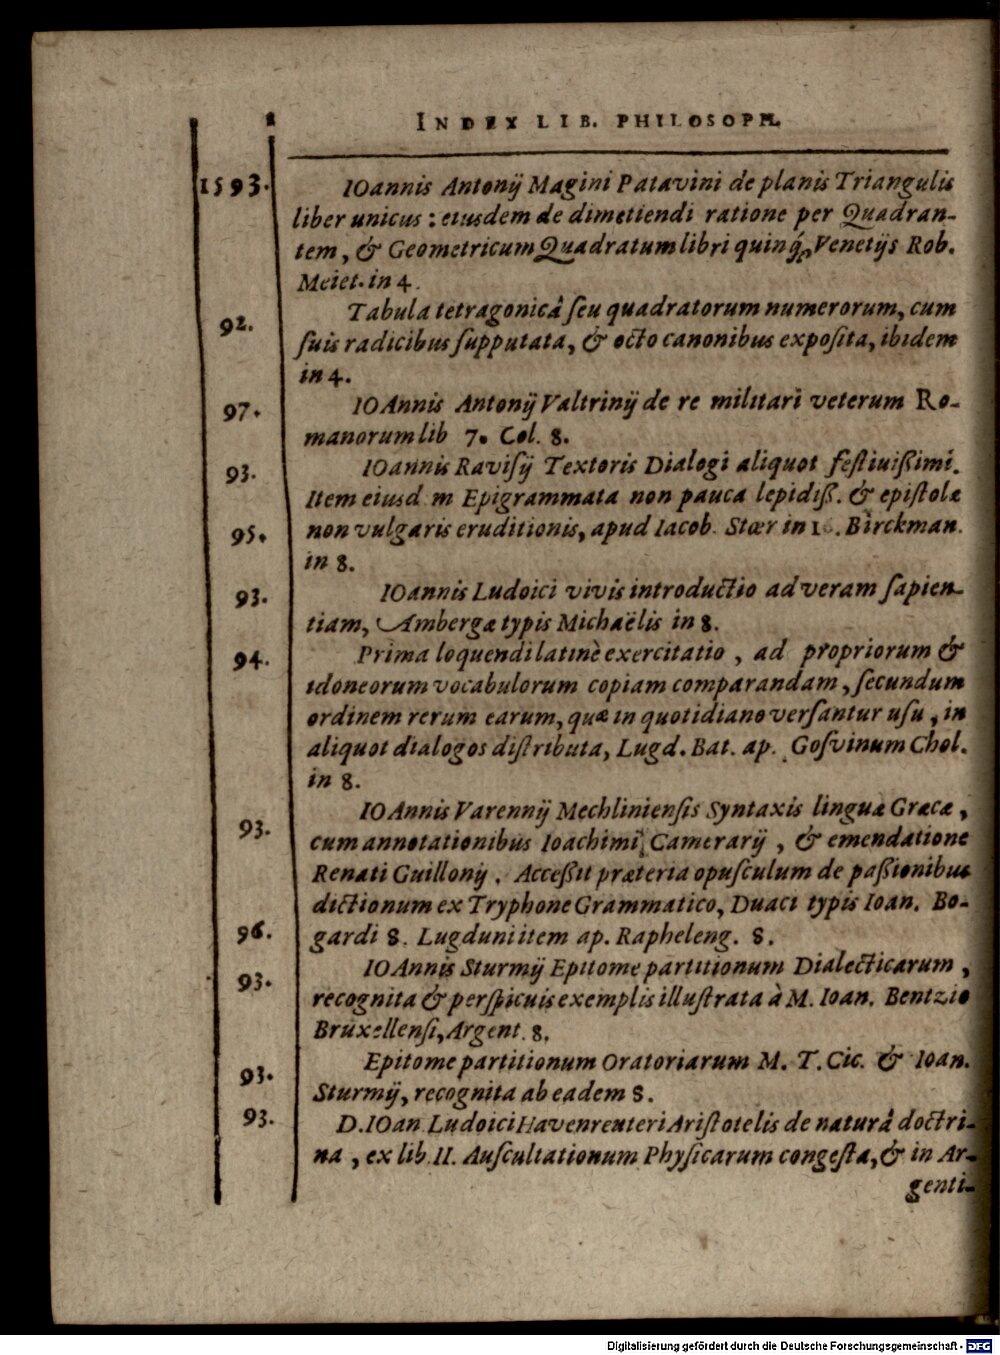 INDEX LIB. PHILOSOPH.
1593. IOannis Antonij Magini Patavini de planis Triangulis
liber unicus : eiusdem de dimetiendi ratione per Quadran-
tem, & Geometricum Quadratum libri quinq́; Venetijs Rob.
Meiet. in 4.
92. Tabula tetragonicâ seu quadratorum numerorum, cum
suis radicibus supputata, & octo canonibus exposita, ibidem
in 4.
97. IOAnnis Antonij Valtrinij de re militari veterum Ro-
manorum lib 7. Col. 8.
93. IOannis Ravisij Textoris Dialogi aliquot festiuißimi.
Item eiusd m Epigrammata non pauca lepidiß. & epistolæ
95. non vulgaris eruditionis, apud Iacob. Stœr in 16. Birckman.
in 8.
93. IOannis Ludoici vivis introductio ad veram sapien-
tiam, Ambergæ typis Michaëlis in 8.
94. Prima loquendi latinè exercitatio , ad propriorum &
idoneorum vocabulorum copiam comparandam , secundum
ordinem rerum earum, quæ in quotidiano versantur usu , in
aliquot dialogos distributa, Lugd. Bat. ap. Gosvinum Chol.
in 8.
93. IOAnnis Varennij Mechliniensis Syntaxis linguæ Græcæ ,
cum annotationibus Ioachimi Camerarij , & emendatione
Renati Guillonij . Acceßit præteria opusculum de paßionibus
dictionum ex Tryphone Grammatico, Duaci typis Ioan. Bo-
96. gardi 8. Lugduni item ap. Rapheleng. 8.
93. IOAnnis Sturmij Epitome partitionum Dialecticarum ,
recognita & perspicuis exemplis illustrata à M. Ioan. Bentzio
Bruxellensi, Argent. 8.
93. Epitome partitionum Oratoriarum M. T. Cic. & Ioan.
Sturmij, recognita ab eadem 8.
93. D. IOan Ludoici Havenreuteri Aristotelis de naturâ doctri-
na , ex lib. II. Auscultationum Physicarum congesta, & in Ar-
genti-
Digitalisierung gefördert durch die Deutsche Forschungsgemeinschaft - DFG